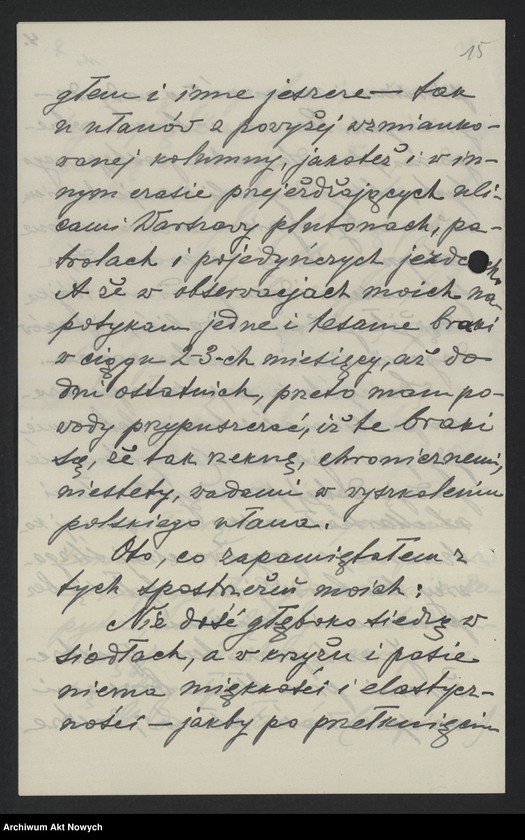 15
głem i inne jeszcze — tak
u ułanów z powyżej wzmianko-
wanej kolumny, jakoteż i w in-
nym czasie przejeżdżających uli-
cami Warszawy plutonach, pa-
trolach i pojedyńczych jeźdc ch.
A że w obserwacjach moich na-
potykam jedne i tesame braki
w ciągu 2-3-ch miesięcy, aż do
dni ostatnich, przeto mam po-
wody przypuszczać, iż te braki
są, że tak rzeknę, chronicznemi,
niestety, wadami w wyszkoleniu
polskiego ułana.
Oto, co zapamiętałem z
tych spostrzeżeń moich:
Nie dość głęboko siedzą w
siodłach, a w krzyżu i pasie
niema miękkości i elastycz-
ności — jakby po przełknięciu
Archiwum Akt Nowych